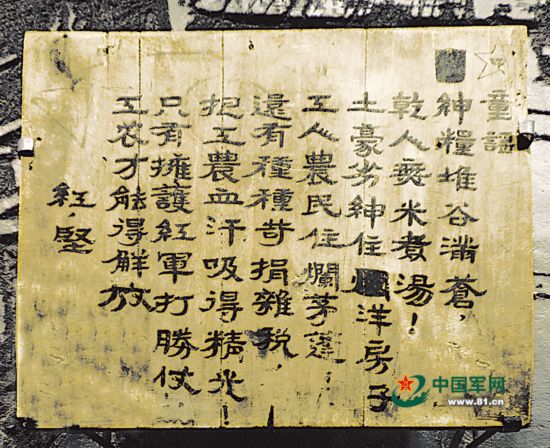 童謡
紳糧堆谷滿蒼，
乾人無米煮湯！
土豪劣紳住洋房子
工人農民住爛茅蓬，
還有種種苛捐雜税，
把工農血汗吸得精光！
只有擁護紅軍打勝仗，
工农才能得解放
紅，堅
中国军网
www.81.cn